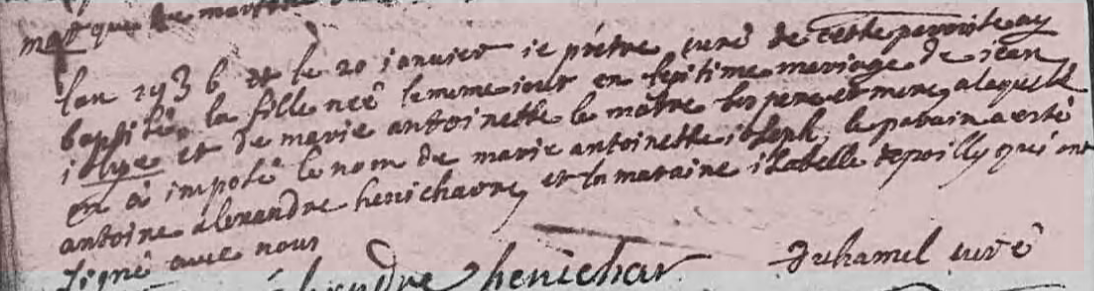 marque de
lan 1736 et le 20 janvier ie prêtre curé de cette paroisse ay
baptisé la fille neé le meme iour en legitime mariage de iean
et de marie antoinette le maitre ses pere et mere a laquelle
on a imposé le nom de marie antoinette ioseph, le parain a esté
antoine alexandre henichavre et la maraine isabelle depoilly qui ont
signé avec nous
henichar duhamel curé